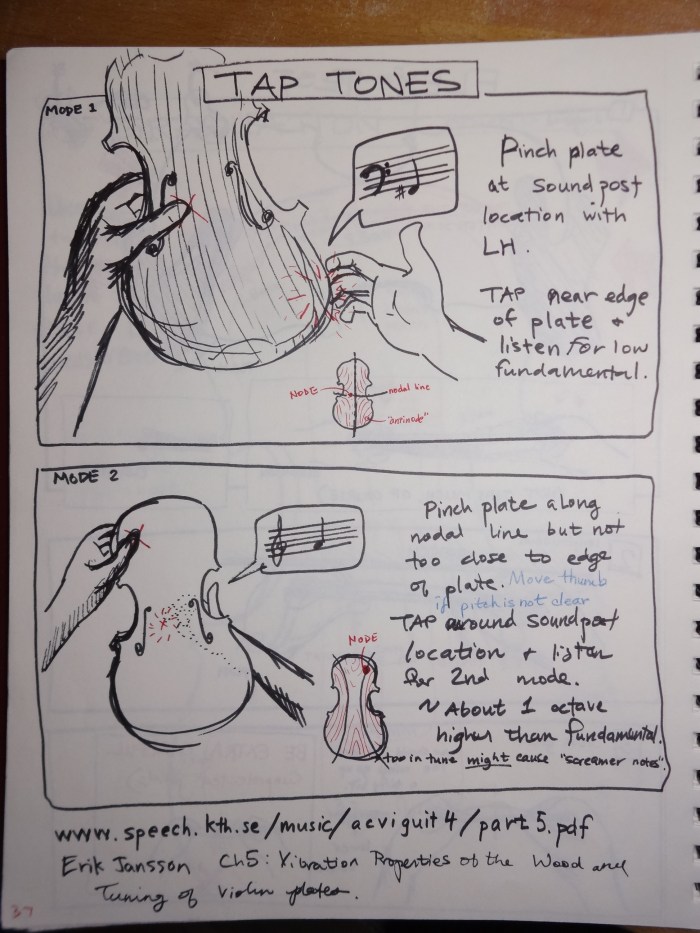 TAP TONES
MODE 1
Pinch plate
at soundpost
location with
LH.
TAP near edge
of plate +
listen for low
fundamental.
NODE
nodal line
"antinode"
MODE 2
Pinch plate along
nodal line but not
too close to edge
of plate. Move thumb
if pitch is not clear
TAP around soundpost
location + listen
for 2nd mode.
~ About 1 octave
higher than fundamental.
* too in tune might cause "screamer notes".
NODE
www.speech.kth.se/music/acviguit4/part5.pdf
Erik Jansson Ch5: Vibration Properties of the Wood and
Tuning of Violin plates.
37